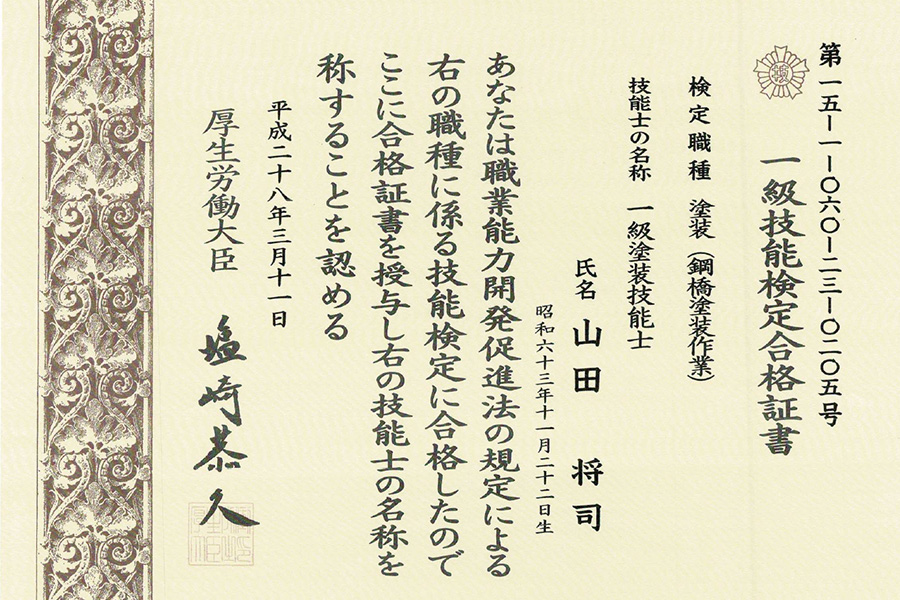 第一五ー一ー〇六〇ー二三ー〇二〇五号
一級技能検定合格証書
検定職種 塗装(鋼橋塗装作業)
技能士の名称 一級塗装技能士
氏名 山田 将司
昭和六十三年十一月二十二日生
あなたは職業能力開発促進法の規定による
右の職種に係る技能検定に合格したので
ここに合格証書を授与し右の技能士の名称を
称することを認める
平成二十八年三月十一日
厚生労働大臣 塩崎恭久